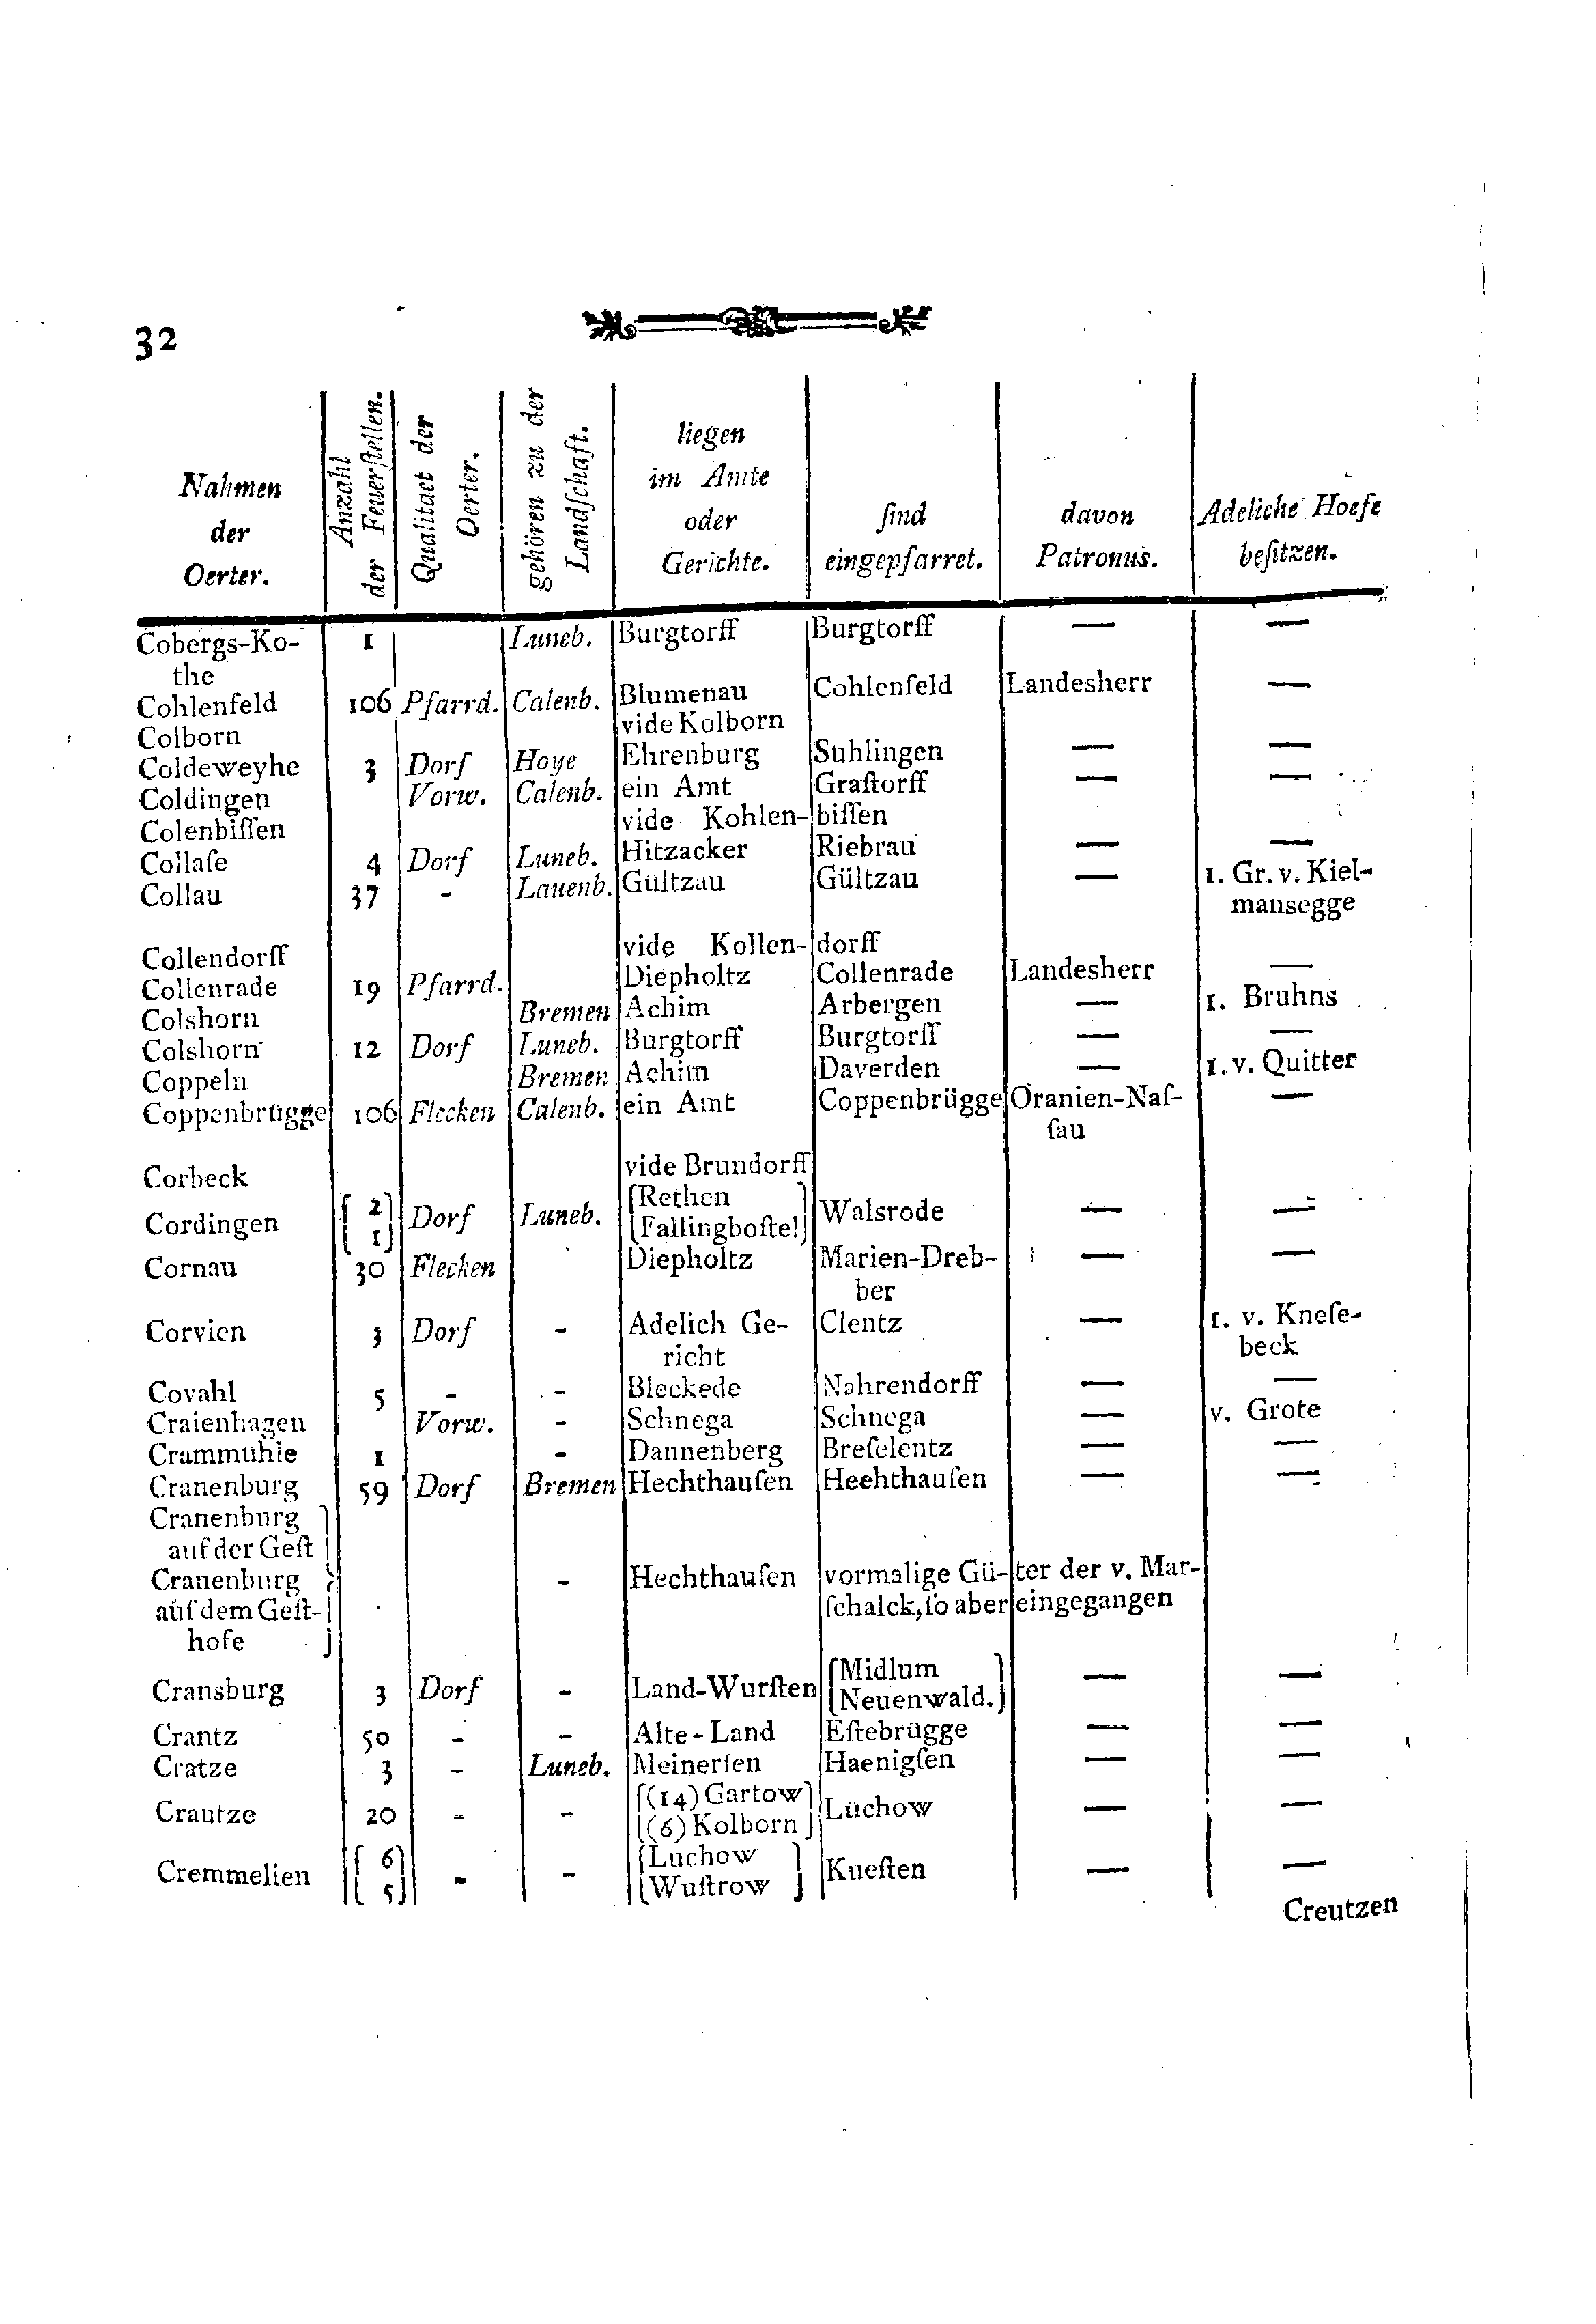 32
Nahmen der Oerter. | Anzahl der Feuerſtellen. | Qualitaet der Oerter. | gehören zu der Landſchaft. | liegen im Amte oder Gerichte. | ſind eingepfarret. | davon Patronus. | Adeliche Hoefe beſitzen.
Cobergs-Ko- 1 Luneb. Burgtorff Burgtorff — —
the
Cohlenfeld 106 Pfarrd. Calenb. Blumenau Cohlenfeld Landesherr —
Colborn vide Kolborn
Coldeweyhe 3 Dorf Hoye Ehrenburg Suhlingen — —
Coldingen Vorw. Calenb. ein Amt Graſtorff — —
Colenbiſſen vide Kohlen-biſſen
Collaſe 4 Dorf Luneb. Hitzacker Riebrau — —
Collau 37 - Lauenb. Gültzau Gültzau — 1. Gr. v. Kiel-
mansegge
Collendorff vide Kollen-dorff
Collenrade 19 Pfarrd. Diepholtz Collenrade Landesherr —
Colshorn Bremen Achim Arbergen — 1. Bruhns
Colshorn 12 Dorf Luneb. Burgtorff Burgtorff — —
Coppeln Bremen Achim Daverden — 1. v. Quitter
Coppenbrügge 106 Flecken Calenb. ein Amt Coppenbrügge Oranien-Naſ- —
ſau
Corbeck vide Brundorff
Cordingen {2 1} Dorf Luneb. {Rethen Fallingboſtel} Walsrode — —
Cornau 30 Flecken Diepholtz Marien-Dreb- — —
ber
Corvien 3 Dorf - Adelich Ge- Clentz — 1. v. Kneſe-
richt beck
Covahl 5 - - Bleckede Nahrendorff — —
Craienhagen Vorw. - Schnega Schnega — v. Grote
Crammühle 1 - Dannenberg Breſelentz — —
Cranenburg 59 Dorf Bremen Hechthauſen Hechthauſen — —
Cranenburg
auf der Geſt
Cranenburg - Hechthauſen vormalige Gü-ter der v. Mar-
auf dem Geſt- ſchalck, ſo aber eingegangen
hofe
Cransburg 3 Dorf - Land-Wurſten {Midlum Neuenwald.} — —
Crantz 50 - - Alte-Land Eſtebrügge — —
Cratze 3 - Luneb. Meinerſen Haenigſen — —
Crautze 20 - - {(14) Gartow (6) Kolborn} Lüchow — —
Cremmelien {6 5} - - {Luchow Wuſtrow} Kueſten — —
Creutzen